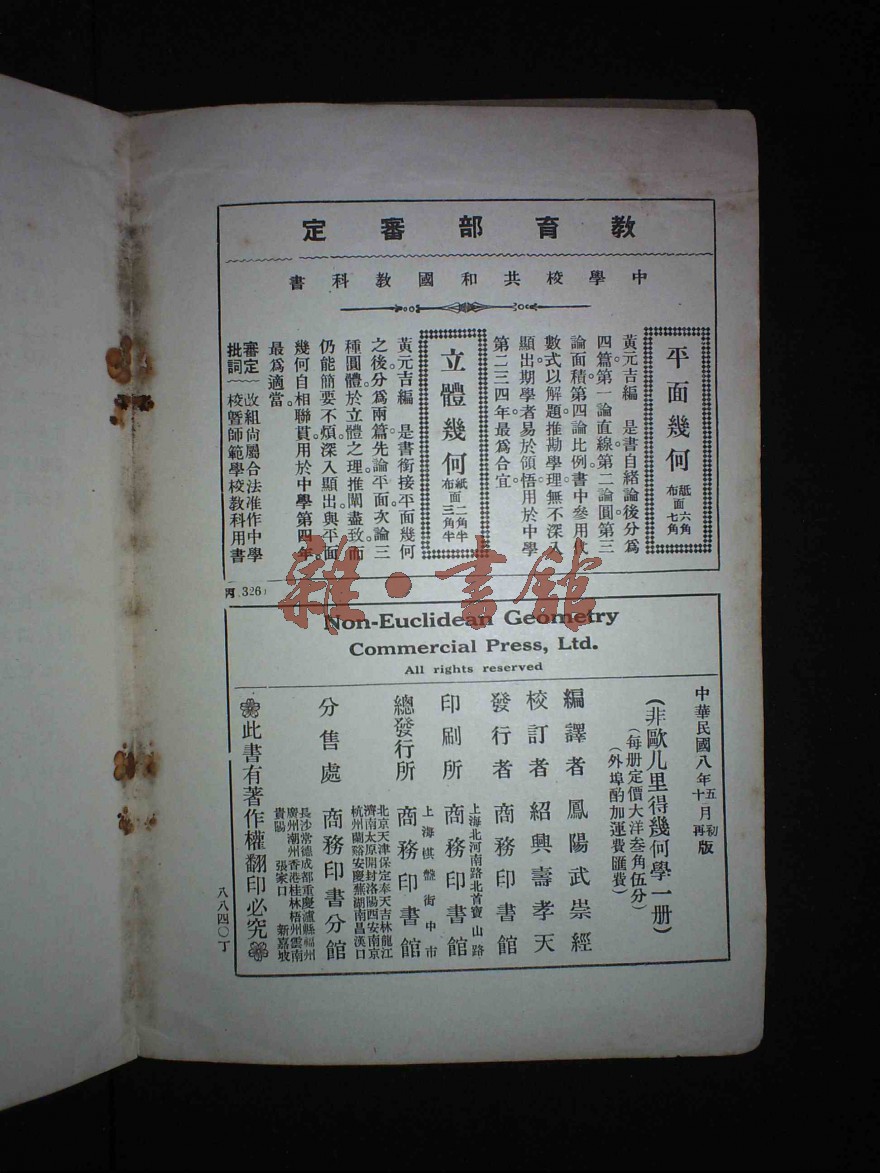 教育部審定
中學校共和國教科書
平面幾何
紙面六角
布面七角
黃元吉編　是書自緒論後分爲
四篇。第一論直線。第二論圓。第三
論面積。第四論比例。書中參用代
數式以解題。推勘學理。無不深入
顯出。期學者易於領悟。用於中學
第二三四年。最爲合宜。
立體幾何
紙面二角半
布面三角半
黃元吉編　是書銜接平面幾何
之後。分爲兩篇。先論平面。次論三
種圓體。於立體之理。推闡盡致。而
仍能簡要不煩。深入顯出。與平面
幾何自相聯貫。用於中學第四年。
最爲適當。
審定批詞
改組尚屬合法准作中學
校暨師範學校教科用書
丙 326)
雜·書館
Non-Euclidean Geometry
Commercial Press, Ltd.
All rights reserved
中華民國八年五月初版
十一月再版
(非歐几里得幾何學一册)
(每册定價大洋叁角伍分)
(外埠酌加運費匯費)
編譯者　鳳陽武崇經
校訂者　紹興壽孝天
發行者　商務印書館
印刷所　上海北河南路北首寶山路
商務印書館
總發行所　上海棋盤街中市
商務印書館
分售處　北京天津保定奉天吉林龍江
濟南太原開封洛陽西安南京
杭州蘭谿安慶蕪湖南昌漢口
商務印書分館
長沙常德成都重慶瀘縣福州
廣州潮州香港桂林梧州雲南
貴陽　張家口　新嘉坡
此書有著作權翻印必究
八八四〇丁